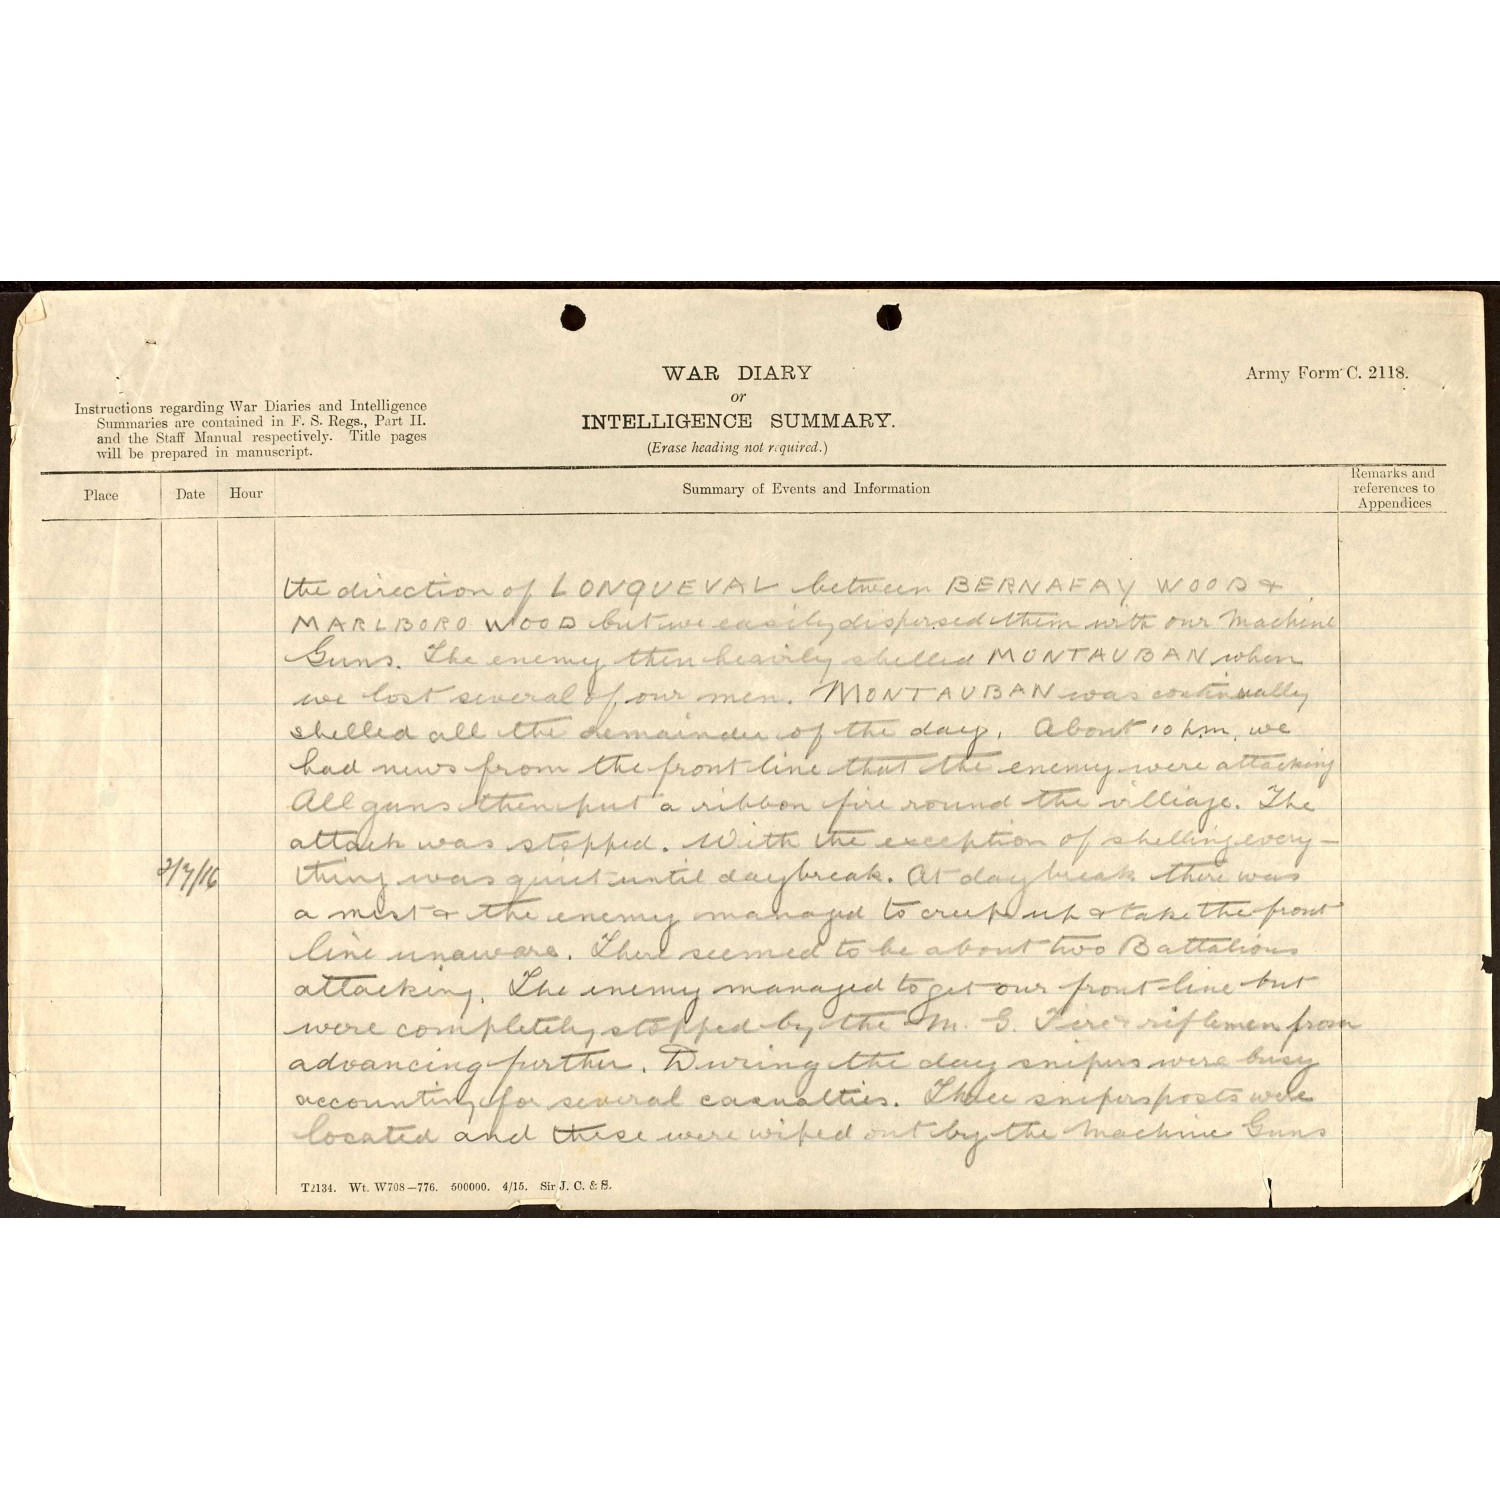 WAR DIARY
or
INTELLIGENCE SUMMARY.
(Erase heading not required.)
Army Form C. 2118.
Instructions regarding War Diaries and Intelligence
Summaries are contained in F. S. Regs., Part II.
and the Staff Manual respectively. Title pages
will be prepared in manuscript.
Place
Date
Hour
Summary of Events and Information
Remarks and
references to
Appendices
the direction of LONQUEVAL between BERNAFAY WOOD &
MARLBORO WOOD but we easily dispersed them with our Machine
Guns. The enemy then heavily shelled MONTAUBAN when
we lost several of our men. MONTAUBAN was continually
shelled all the remainder of the day. About 10 p.m. we
had news from the front line that the enemy were attacking
All guns then put a ribbon fire round the villiage. The
attack was stopped. With the exception of shelling every-
2/7/16
thing was quiet until daybreak. At daybreak there was
a mist & the enemy managed to creep up & take the front
line unaware. There seemed to be about two Battalions
attacking. The enemy managed to get our front line but
were completely stopped by the M. G. Fire & riflemen from
advancing further. During the day snipers were busy
accounting for several casualties. Three snipersposts were
located and these were wiped out by the Machine Guns
T2134. Wt. W708-776. 500000. 4/15. Sir J. C. & S.